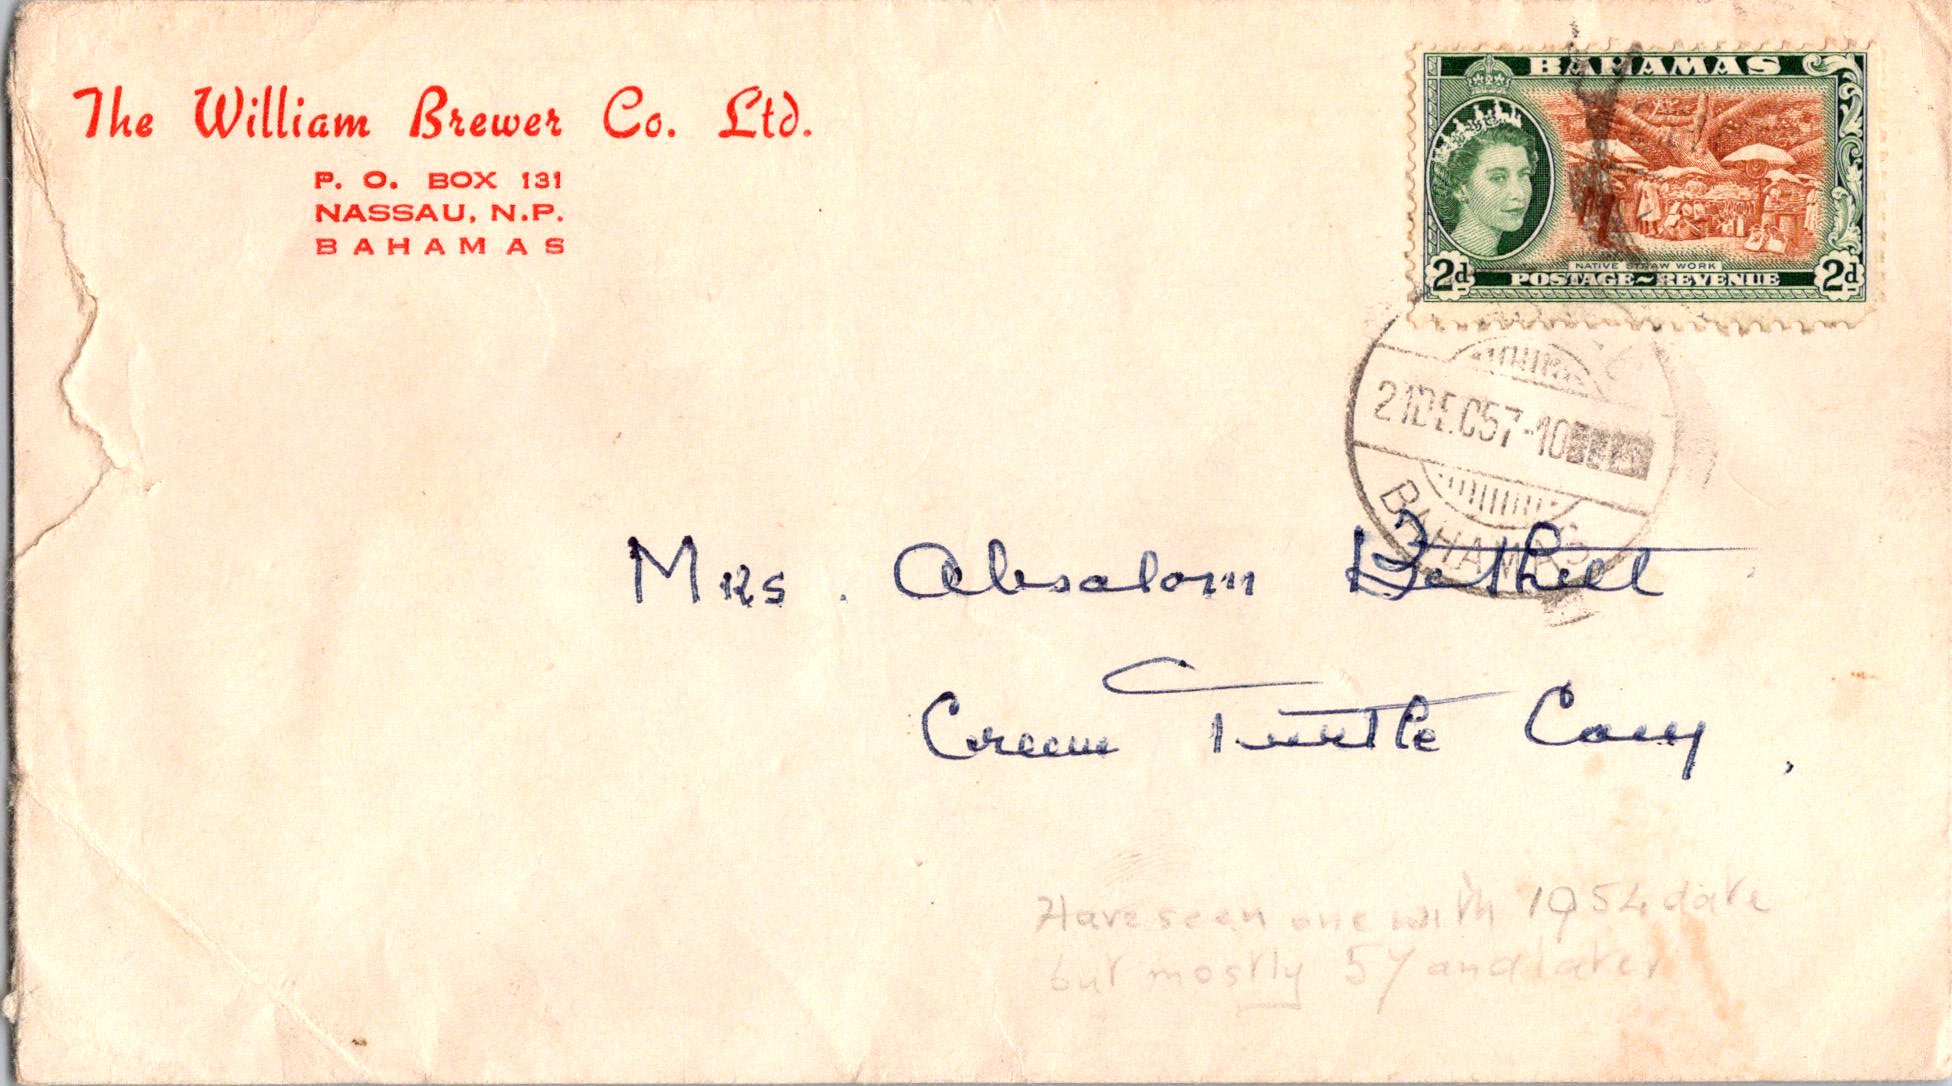 The William Brewer Co. Ltd.
P. O. BOX 131
NASSAU, N.P.
BAHAMAS
BAHAMAS
NATIVE STRAW WORK
2d POSTAGE~REVENUE 2d
21DEC57-10
BAHAMAS
Mrs. Absalom Bethell
Green Turtle Cay,
Have seen one with 1954 date
but mostly 57 and later